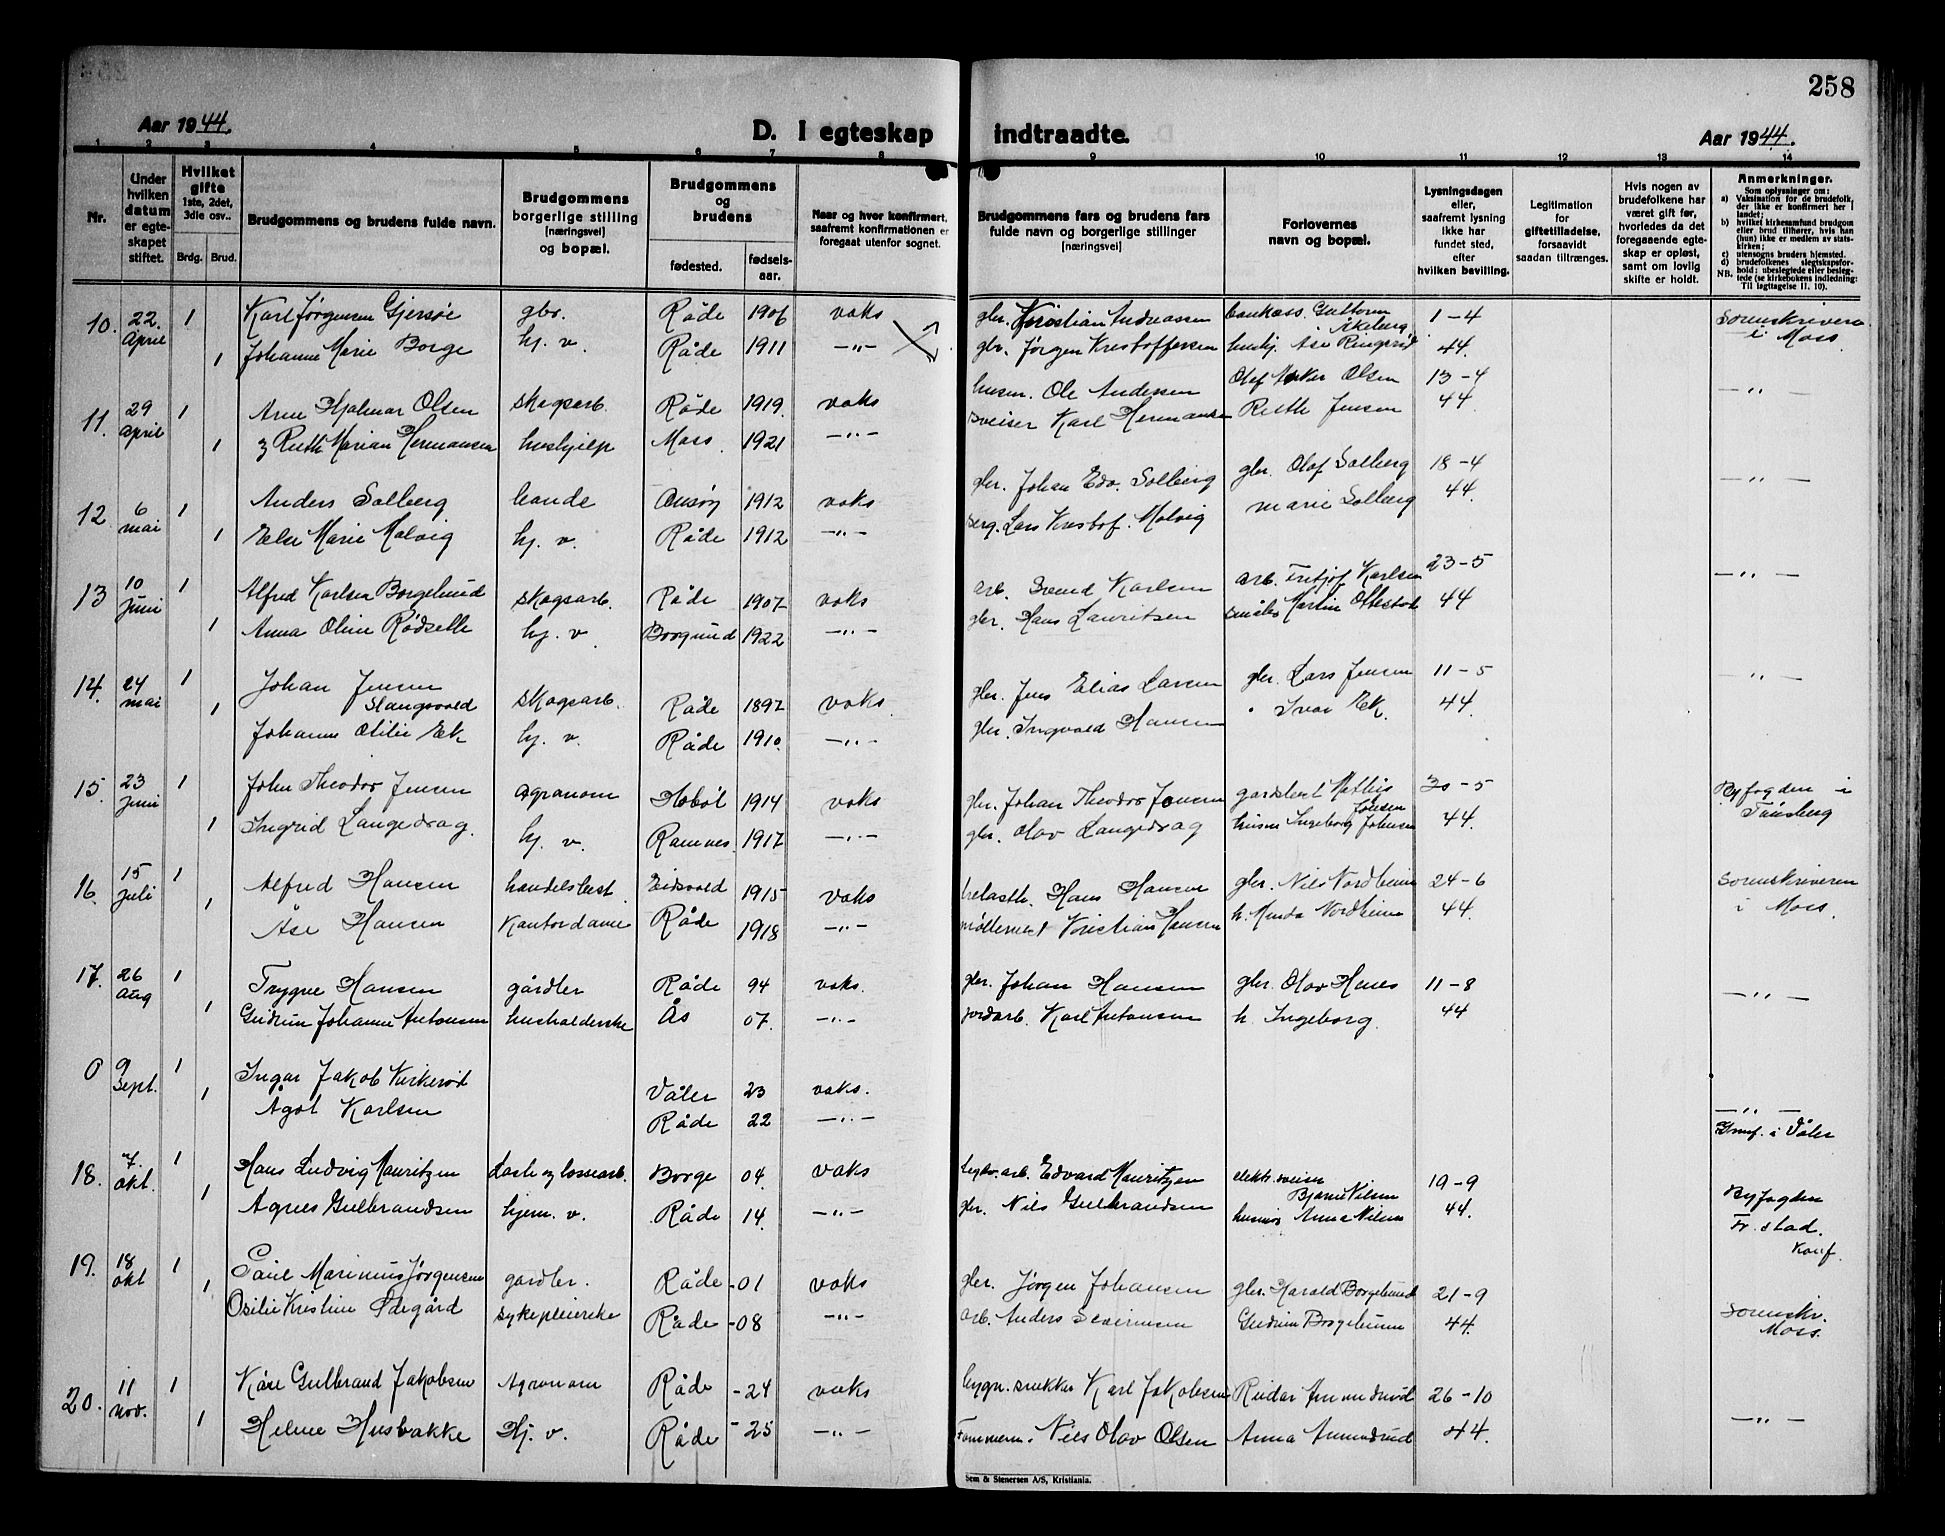 258
Aar 1944.
D. I egteskap indtraadte.
Aar 1944.
1 2 3 4 5 6 7 8 9 10 11 12 13 14
Nr.
Under hvilken datum er egteskapet stiftet.
Hvilket gifte 1ste, 2det, 3die osv..
Brdg. Brud.
Brudgommens og brudens fulde navn.
Brudgommens borgerlige stilling (næringsvei) og bopæl.
Brudgommens og brudens
fødested.
fødselsaar.
Naar og hvor konfirmert, saafremt konfirmationen er foregaat utenfor sognet.
Brudgommens fars og brudens fars fulde navn og borgerlige stillinger (næringsvei)
Forlovernes navn og bopæl.
Lysningsdagen eller, saafremt lysning ikke har fundet sted, efter hvilken bevilling.
Legitimation for giftetilladelse, forsaavidt saadan tiltrænges.
Hvis nogen av brudefolkene har været gift før, hvorledes da det foregaaende egteskap er opløst, samt om lovlig skifte er holdt.
Anmerkninger.
Som oplysninger om:
a) Vaksination for de brudefolk, der ikke er konfirmert her i landet;
b) hvilket kirkesamfund brudgom eller brud tilhører, hvis han (hun) ikke er medlem av statskirken;
c) utensogns bruders hjemsted.
d) brudefolkenes slegtskapsforhold: ubeslegtede eller beslegtede (se kirkebokens indledning: Til iagttagelse 11. 10).
NB.
10. 22. April 1 Karl Jørgensen Gjersøe gbr. Råde 1906 voks gbr. Kristian Andreassen 1-4 Sorenskriveren
1 Johanne Marie Borge hj. v. Råde 1911 -"- gbr. Jørgen Kristoffersen 44. i Moss
11. 29 April 1 Arne Hjalmar Olsen skogsarb. Råde 1919. voks husm. Ole Andersen Olaf Olsen 13-4 -"-
1 Ruth Marian Hermansen hushjelp Moss 1921 -"- sveiser Karl Hermansen Ruth Jensen 44
12. 6 mai 1 Anders Solberg bonde Onsøy 1912 voks gbr. Johan Edv. Solberg gbr. Olaf Solberg 18-4 -"-
1 Else Marie Molvig hj. v. Råde 1912 -"- Lars Kristof. Molvig Marie Solberg 44.
13 10 Juni 1 Alfred Karlsen Borgelund skogsarb. Råde 1907 voks arb. Svend Karlsen arb. Fritjof Karlsen 23-5 -"-
1 Anna Oline Rødselle hj. v. Borgund 1922 -"- gbr. Hans Lauritsen Martin Ottestad 44
14. 24 mai 1 Johan Jensen Slangsvold skogsarb. Råde 1897 voks gbr. Jens Elias Larsen gbr. Lars Jensen 11-5 -"-
1 Johanne Otilie Ek hj. v. Råde 1910. -"- gbr. Ingvald Hansen " Ivar Ek 44.
15. 23 Juni 1 John Theodor Jensen agronom Hobøl 1914 voks gbr. Johan Theodor Jensen 30-5 Byfogden i
1 Ingrid Langedrag. hj. v. Ramnes. 1917 -"- gbr. Olav Langedrag Ingeborg Johnsen 44. Tønsberg
16. 15 Juli 1 Alfred Hansen handelsbest. Eidsvold 1915 voks Hans Hansen gbr. Nils Nordheim 24-6 Sorenskriveren
1 Åse Hansen Kontordame Råde 1918 -"- Kristian Hansen h. Nordheim 44. i Moss.
17. 26 Aug 1 Trygve Hansen gårdbr Råde 94 voks. gbr. Johan Hansen gbr. Olav 11-8 -"-
1 Gudrun Johanne Antonsen husholderske Ås 07. -"- jordarb. Karl Antonsen h. Ingeborg. 44
0 9 Sept. 1 Ingar Jakob Kirkerød Våler 23 voks.
1 Ågot Karlsen Råde 22 -"- -"-
i Våler
18. 7. okt. 1 Hans Ludvig Mauritzen Laste og lossearb. Borge 04. voks Edvard Mauritzen elektr. sveiser Bjarne Nilsen 19-9 Byfogden
1 Agnes Gulbrandsen hjem. v. Råde 14. -"- gbr. Nils Gulbrandsen Anna Nilsen 44. Fr. stad.
19. 18 okt 1 Paul Marinius Jørgensen gardbr. Råde -01 voks gbr. Jørgen Johansen gbr. Harald Borgelund 21-9
1 Otilie Kristine Ødegård sykepleierske Råde -08 -"- arb. Anders Severinsen Gudrun Borgelund 44. Sorenskr. Moss.
20. 11 nov. 1 Kåre Gulbrand Jakobsen Agronom Råde -24 voks bygn. snekker Karl Jakobsen Reidar Amundrød 26-10
1 Helene Husbakke Hj. v. Råde -25 -"- Tømmerm. Nils Olav Olsen Anna Amundrud 44. -"-
Sem & Stenersen A/S, Kristiania.